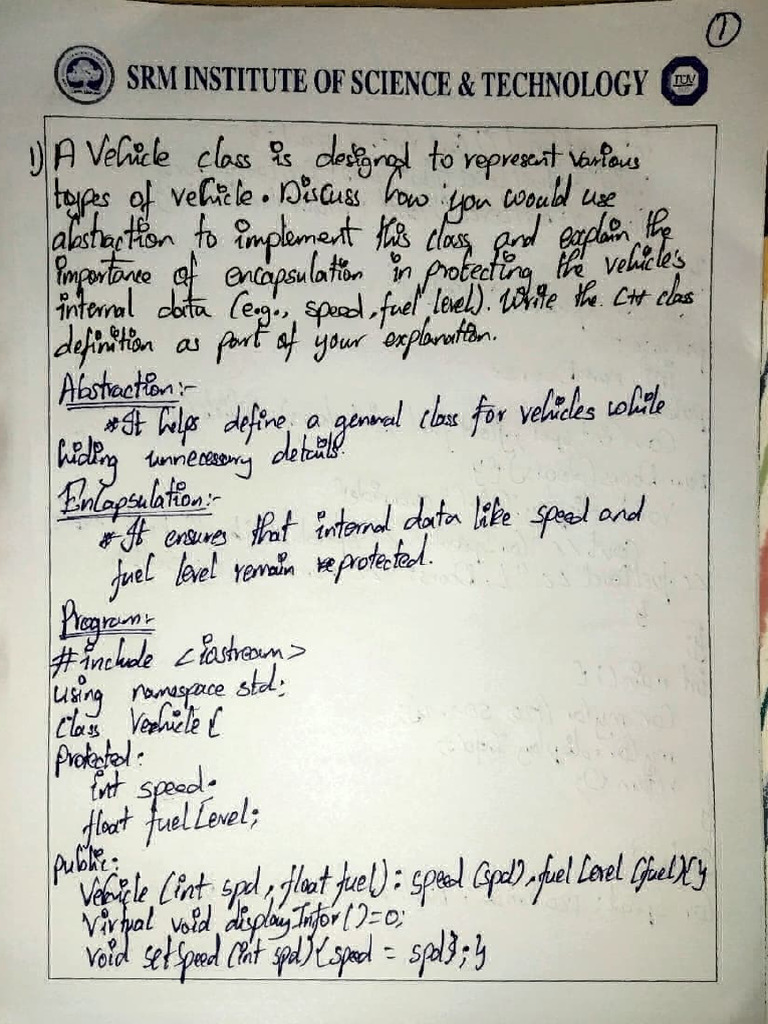 1
SRM INSTITUTE OF SCIENCE & TECHNOLOGY
TÜV
1) A Vehicle class is designed to represent various
types of vehicle. Discuss how you would use
abstraction to implement this class and explain the
importance of encapsulation in protecting the vehicle's
internal data (e.g., speed, fuel level). Write the C++ class
definition as part of your explanation.
Abstraction:-
*It helps define a general class for vehicles while
hiding unnecessary details.
Encapsulation:-
*It ensures that internal data like speed and
fuel level remain protected.
Program:-
#include <iostream>
using namespace std;
class Vehicle {
Protected:
int speed.
float fuelLevel;
public:
Vehicle (int spd, float fuel) : speed (spd), fuelLevel (fuel) { }
Virtual void displayInfor()=0;
void setSpeed (int spd) { speed = spd}; }